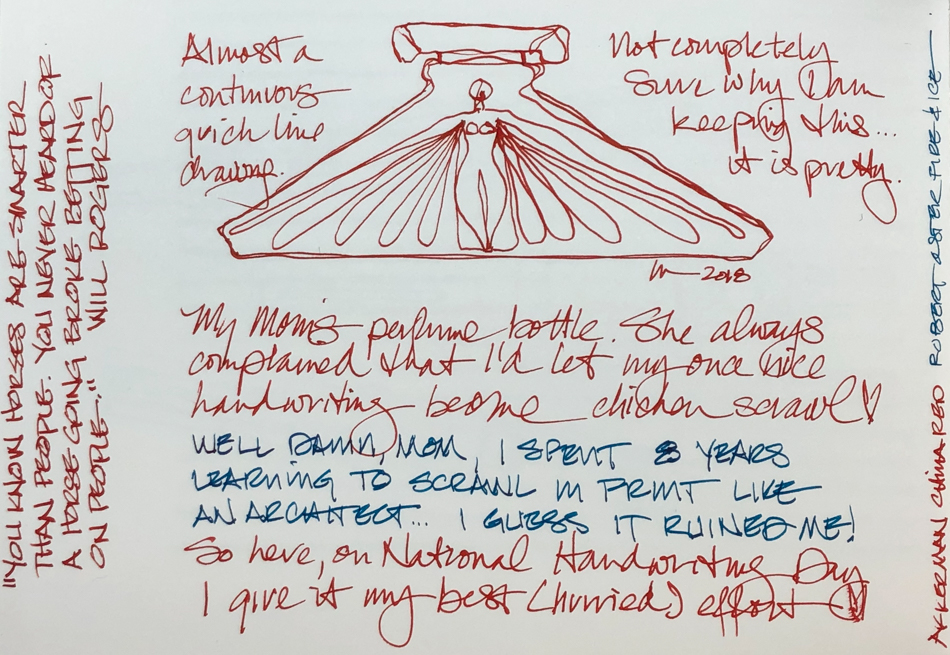 Almost a
continuous
quick line
drawing.
Not completely
sure why I am
keeping this...
it is pretty.
2018
My Mom's perfume bottle. She always
complained that I'd let my once nice
handwriting become chicken scrawl
WELL DAMN, MOM, I SPENT 8 YEARS
LEARNING TO SCRAWL IN PRINT LIKE
AN ARCHITECT... I GUESS IT RUINED ME!
So here, on National Handwriting Day
I give it my best (hurried) effort
"YOU KNOW HORSES ARE SMARTER
THAN PEOPLE. YOU NEVER HEARD OF
A HORSE GOING BROKE BETTING
ON PEOPLE." WILL ROGERS
AKKERMAN CHINA RED ROBERT OSTER FIRE & ICE